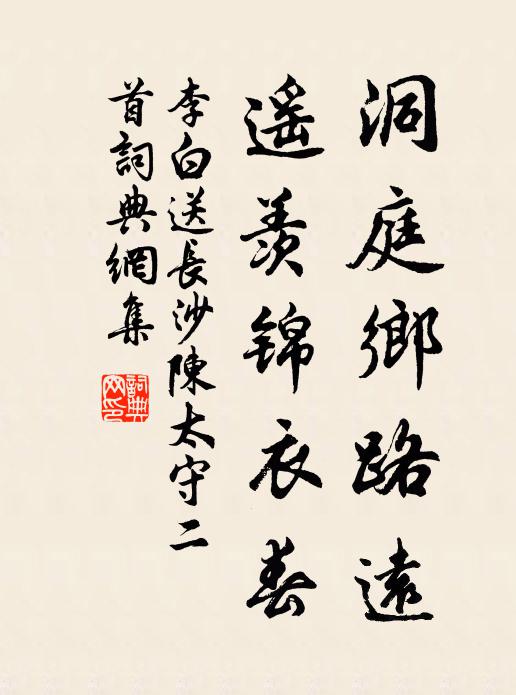 洞庭鄉路遠
遥羨锦衣春
李白送長沙陳太守二
首詞典網集
詞典
网印